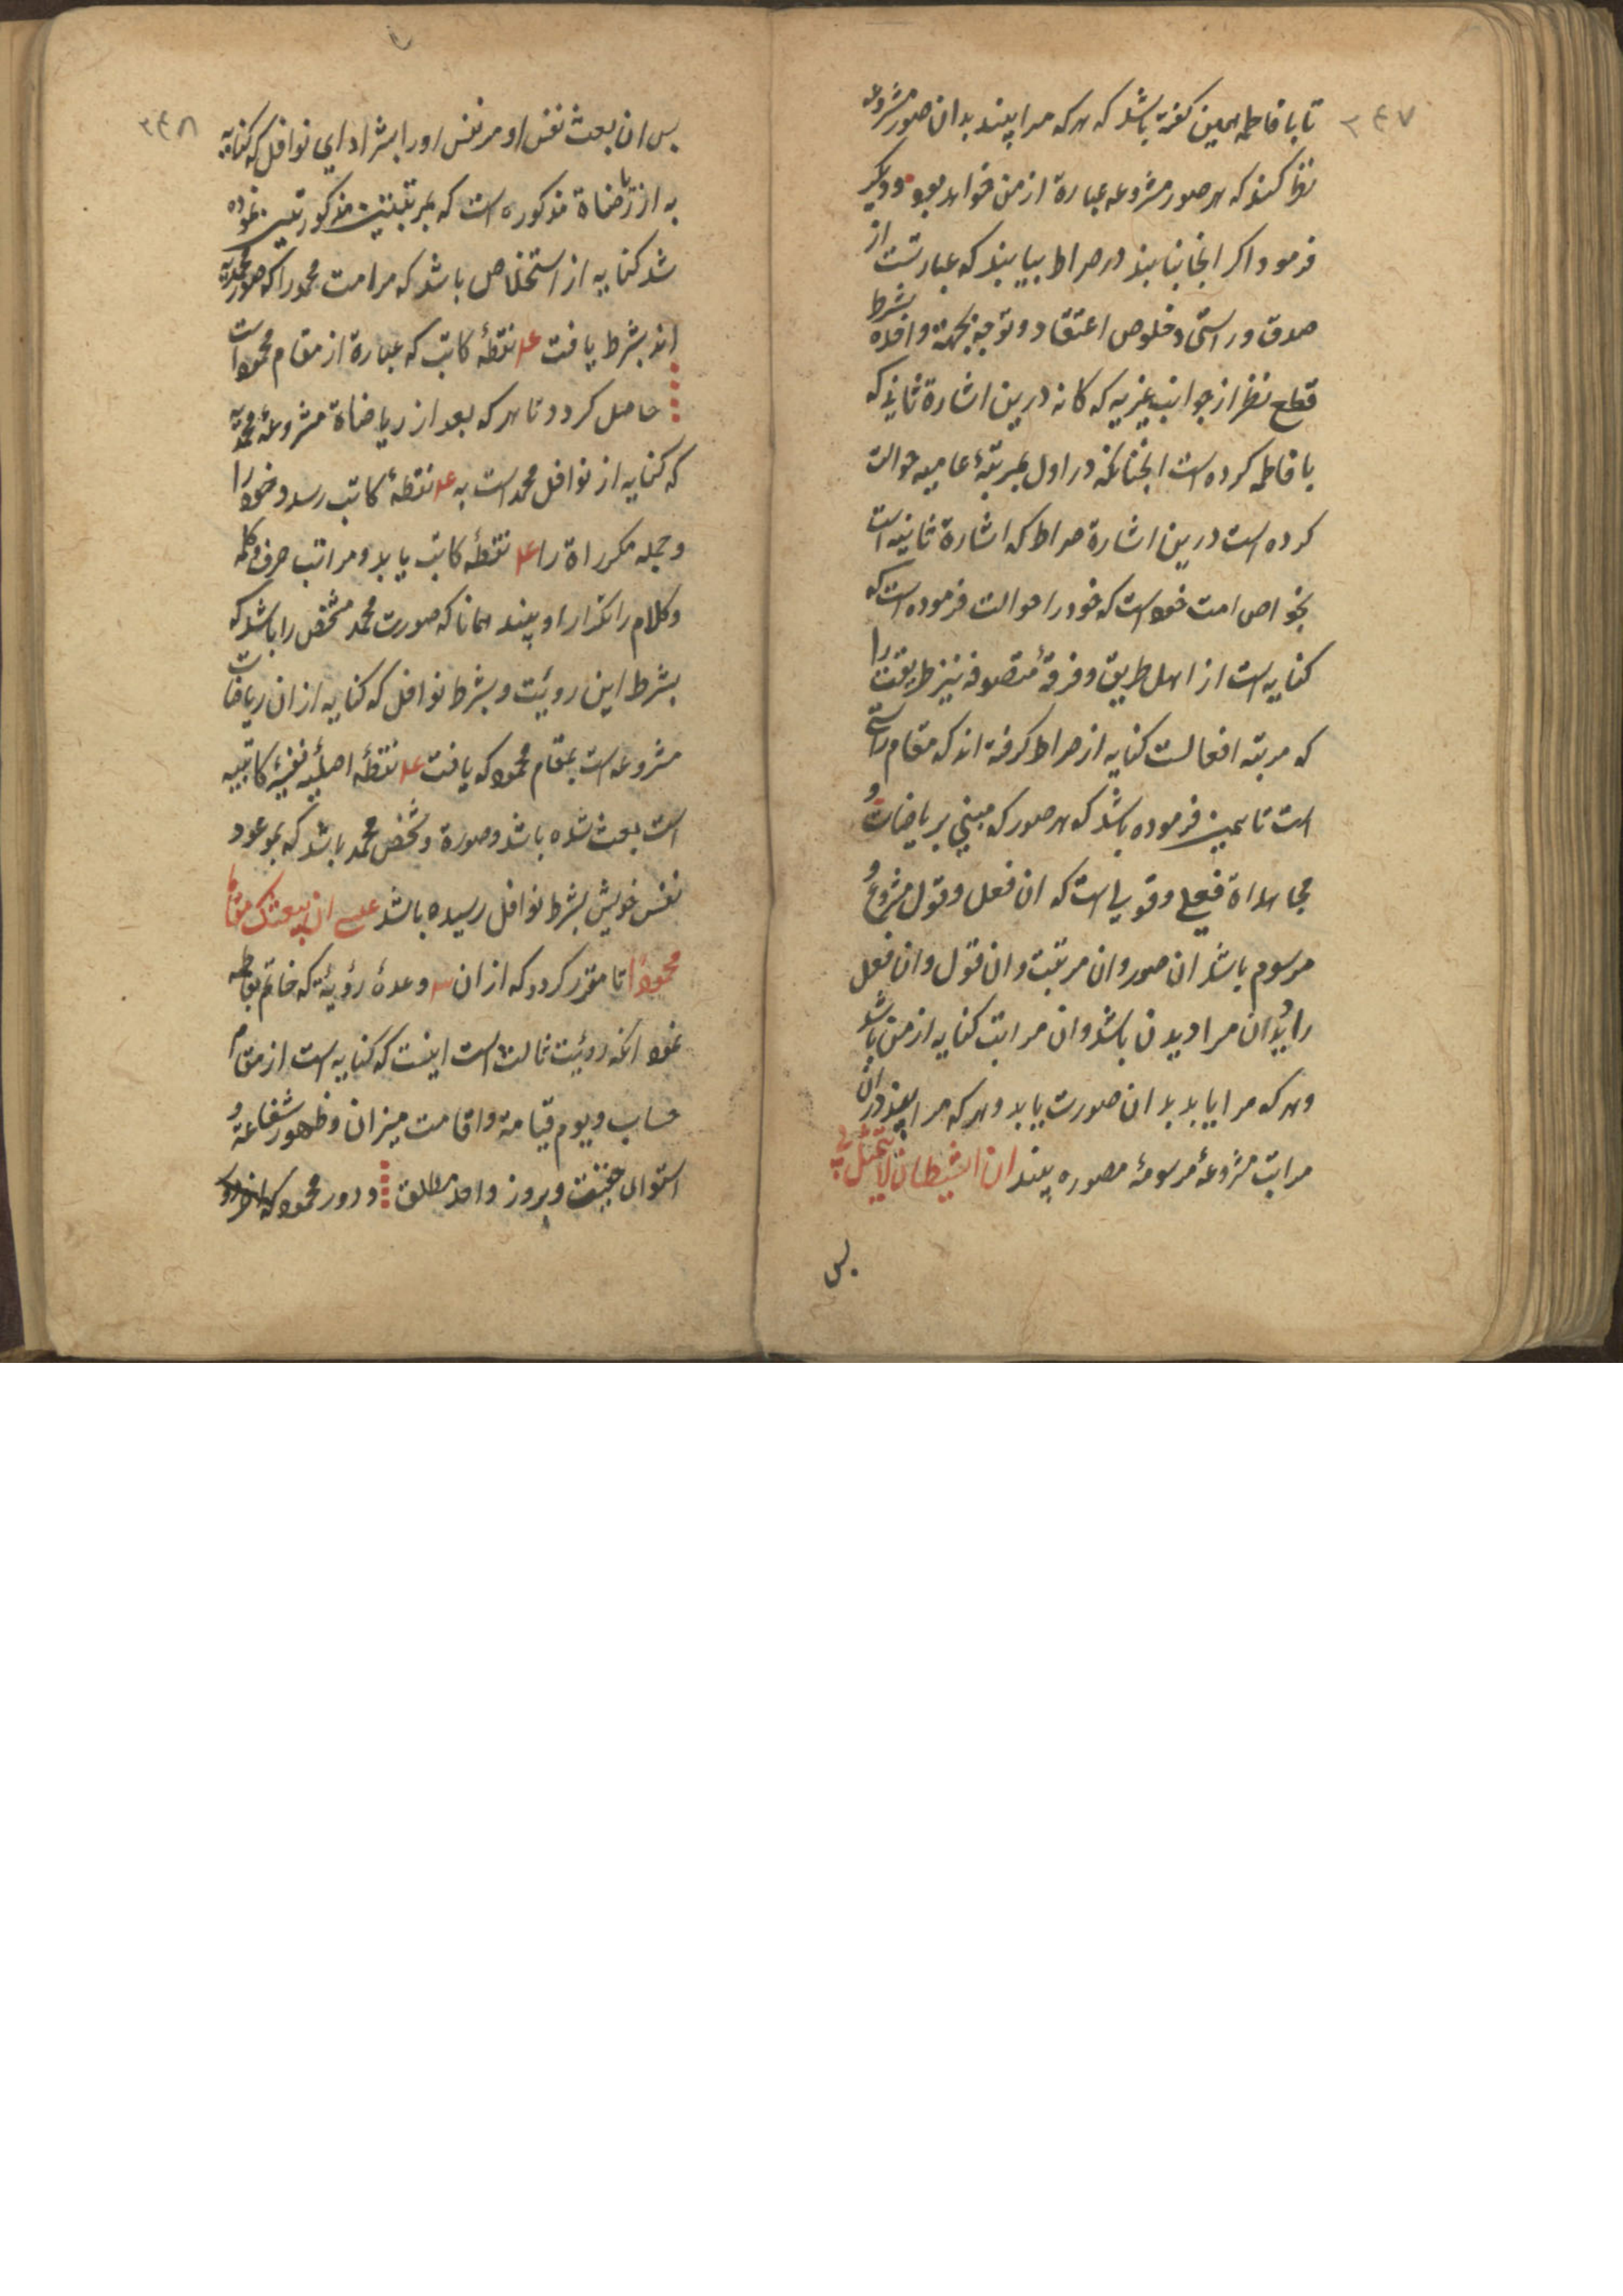 ۲۴۷
تا با فاطمه همین گفته باشد که هرکه مرا بیند بدان صور مشروعه
نظر کند که هر صور مشروعه عبارة از من خواهد بود و دیگر
فرمود اگر انجا نیابند در صراط بیابند که عبارتست از
صدق و راستی و خلوص اعتقاد و توجه بجهة واحده بشرط
قطع نظر از جوانب غیریه که کانه درین اشارة ثانی که
با فاطمه کرده است انچنانکه در اول بمرتبهٔ عامیه حوالت
کرده است درین اشارة صراط که اشارة ثانیه است
بخواص امت خود است که خود را حوالت فرموده است که
کنایه است از اهل طریق و فرقهٔ متصوفه نیز طریقت را
که مرتبه افعالست کنایه از صراط کرفته اند که مقام راستی
است تا همین فرموده باشد که هر صور که مبنی بر ریاضات و
مجاهداة فعلی و قولی است که ان فعل و قول مشروع و
مرسوم باشد ان صور و ان مرتبت و ان قول و ان فعل
را دیدان مرا دیدن باشد و ان مراتب کنایه از من باشد
و هر که مرا یابد بدان صورت یابد و هر که مرا بیند در ان
مراتب مشروعهٔ مرسومهٔ مصوره بیند ان الشیطان لا یتمثل بی
پس
۲۴۸
پس ان بعث نفس او مر نفس او را بشر ادای نوافل که کنایه
به از ریاضاة مذکوره است که بمرتبتین مذکور تعیین نموده
شد کنایه از استخلاص باشد که مر امت محمد را که صور محمدیه
اند بشرط یافت عد نقطهٔ کاتب که عبارة از مقام محمود است
حاصل کردد تا هر که بعد از ریاضاة مشروعهٔ محمدیة
که کنایه از نوافل محمد است به عد نقطهٔ کاتب رسد و خود را
و جمله مکرراة را عد نقطهٔ کاتب یابد و مراتب حرف و کلمه
و کلام را تکرار او بیند همانا که صورت محمد مشخص را باشد که
بشرط این رویت و بشرط نوافل که کنایه از ان ریاضات
مشروعه است بمقام محمود که یافت عد نقطهٔ اصلیهٔ نفسیهٔ کاتبیه
است بعث شده باشد و صورة و شخص محمد باشد که بموعود
نفس خویش بشرط نوافل رسیده باشد عسی ان یبعثک مقاما
محمودا تا مقرر کردد که از ان سه وعدهٔ رؤیة که خاتم بفاطمه
نمود انکه رویت ثالث است اینست که کنایه است از مقام
حساب و یوم قیامة و اقامت میزان و ظهور شفاعة و
استوای حقیقت و بروز واحد مطلق و دور محمود که